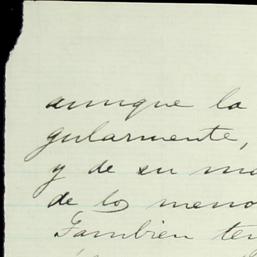 aunque la
gularmente,
y de su ma
de los meno
Tambien ten